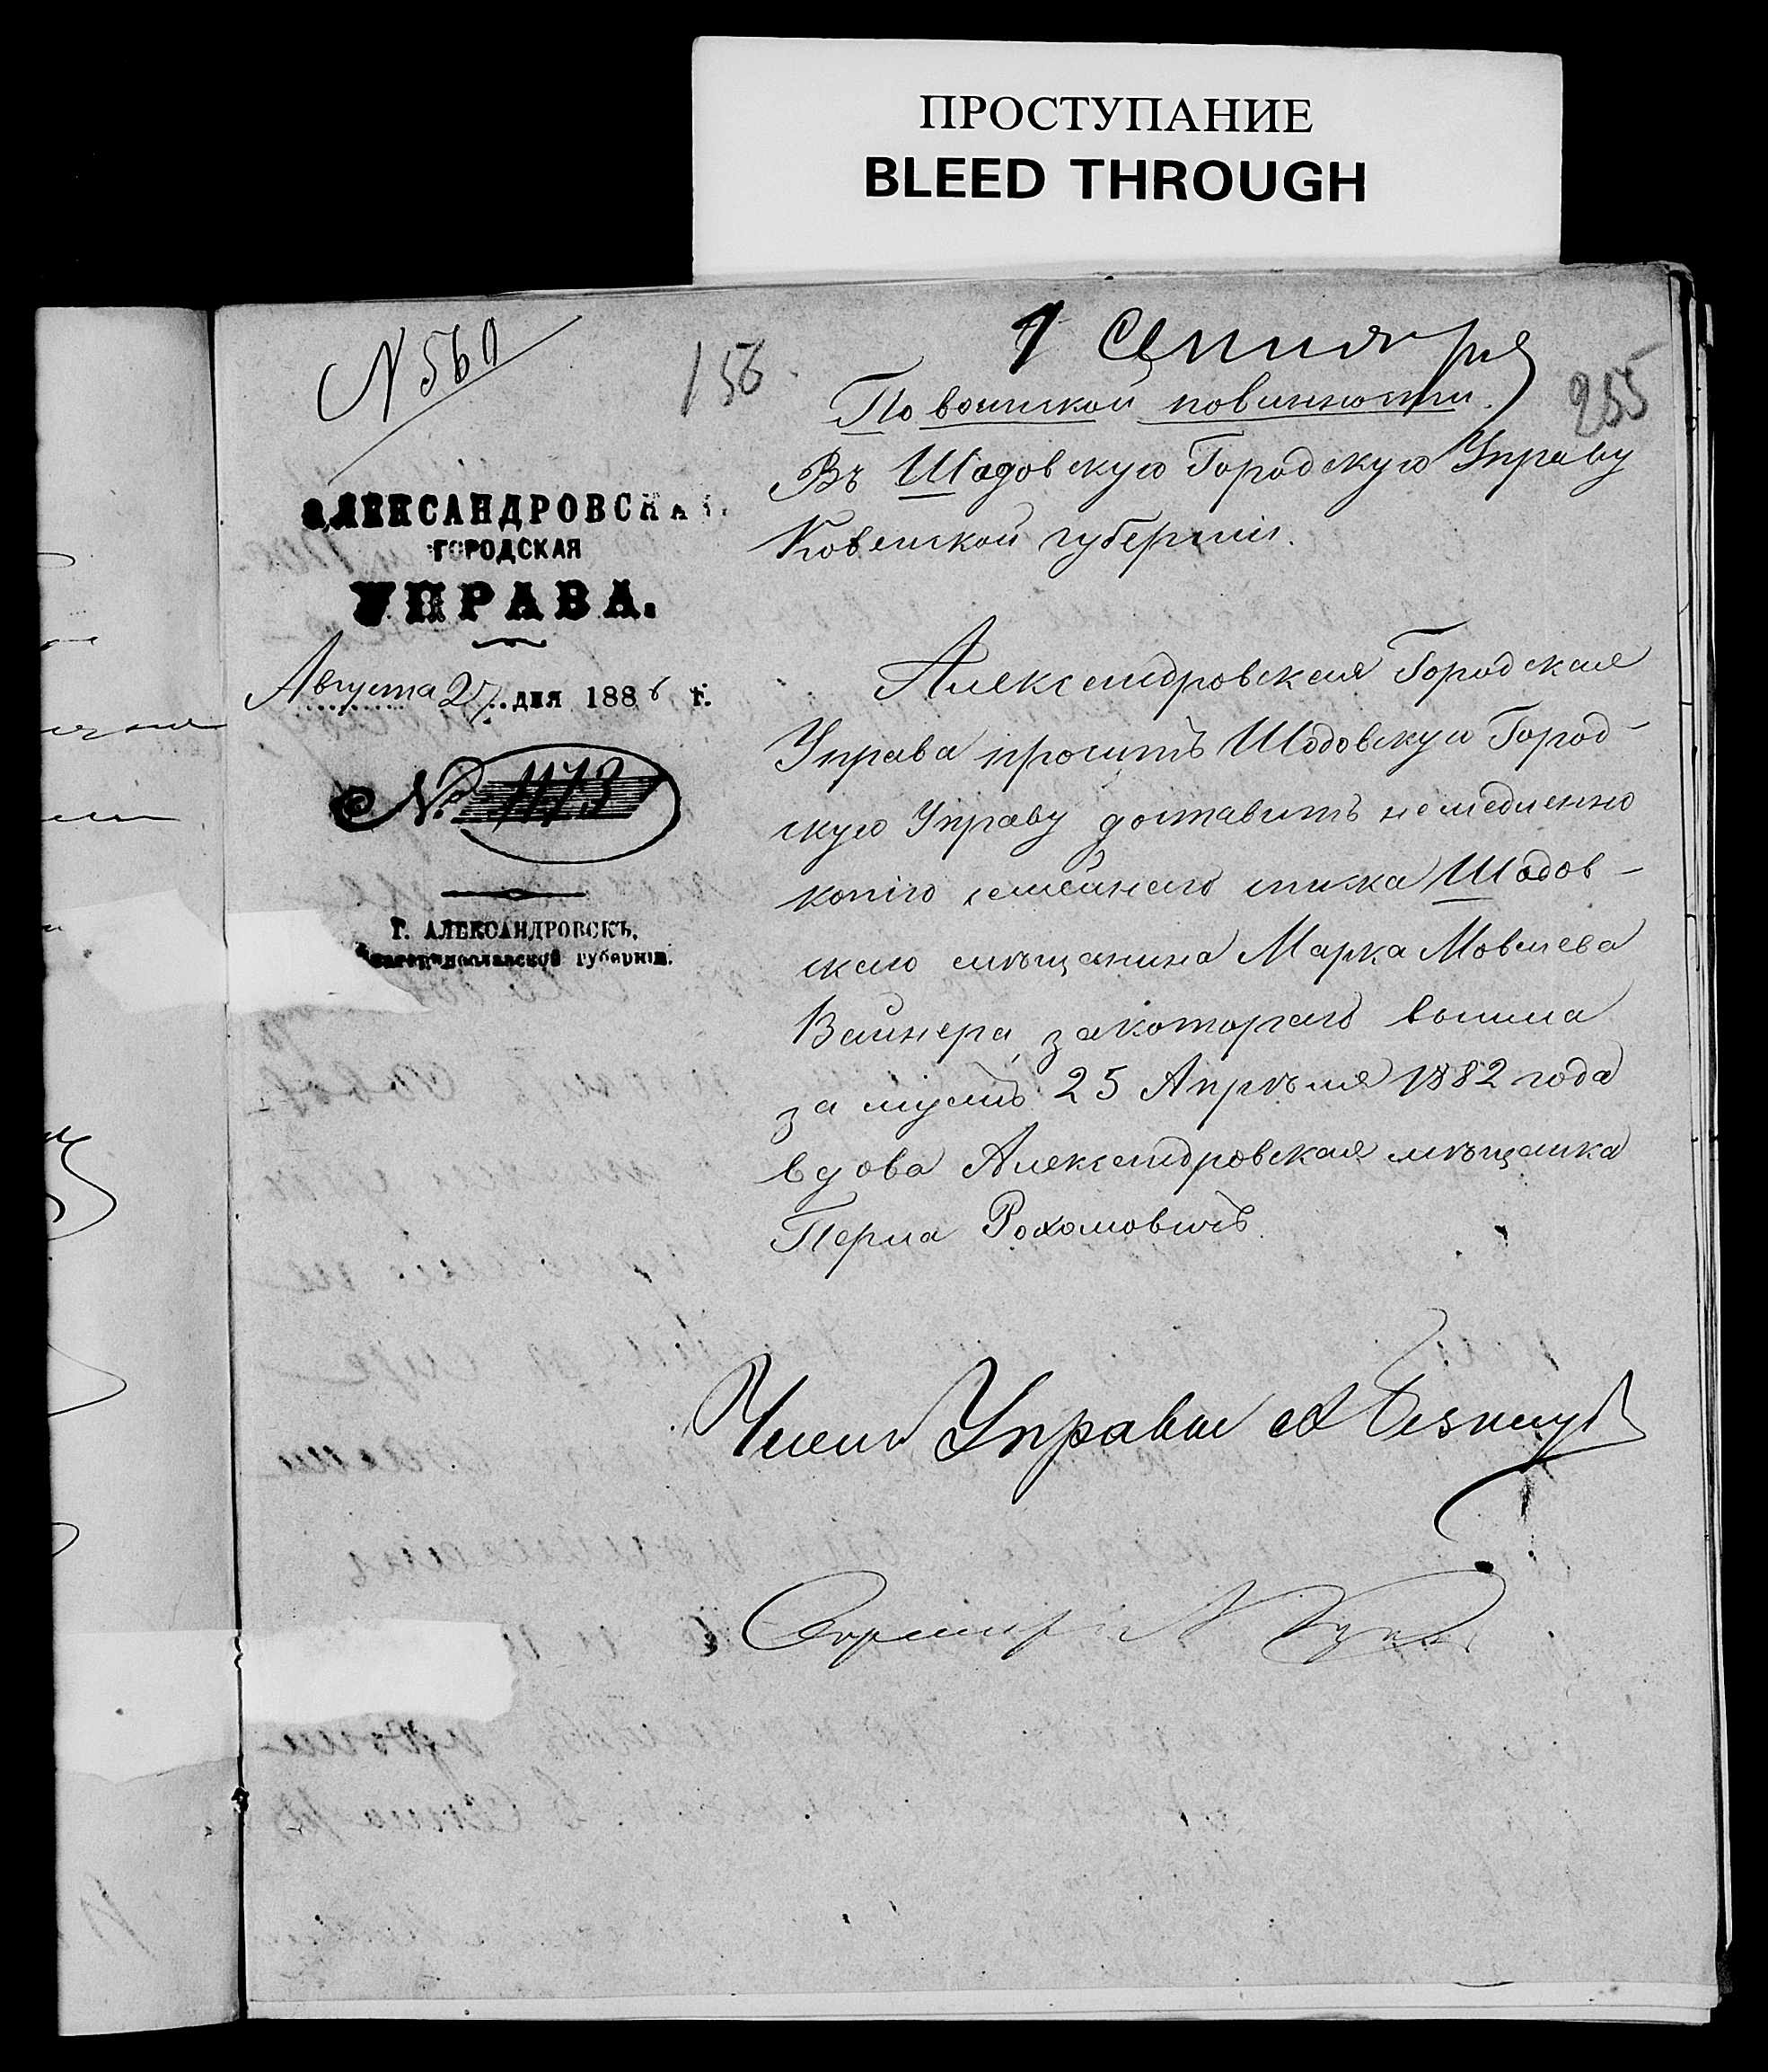 ПРОСТУПАНИЕ
BLEED THROUGH
N 560
156
1 Сентября
255
По воинской повинности.
Въ Шадовскую Городскую Управу
Ковенской губерніи.
АЛЕКСАНДРОВСКАЯ
ГОРОДСКАЯ
УПРАВА.
Августа 27 дня 1886 г.
№ 1173
Г. АЛЕКСАНДРОВСКЪ,
Екатеринославской губерніи.
Александровская Городская
Управа проситъ Шадовскую Город-
скую Управу доставить немедленно
копію семейнаго списка Шадов-
скаго мѣщанина Марка Мовшева
Вайнера, за котораго вышла
за мужъ 25 Апрѣля 1882 года
вдова Александровская мѣщанка
Перла Рохомовичъ.
Членъ Управы А
Секретарь